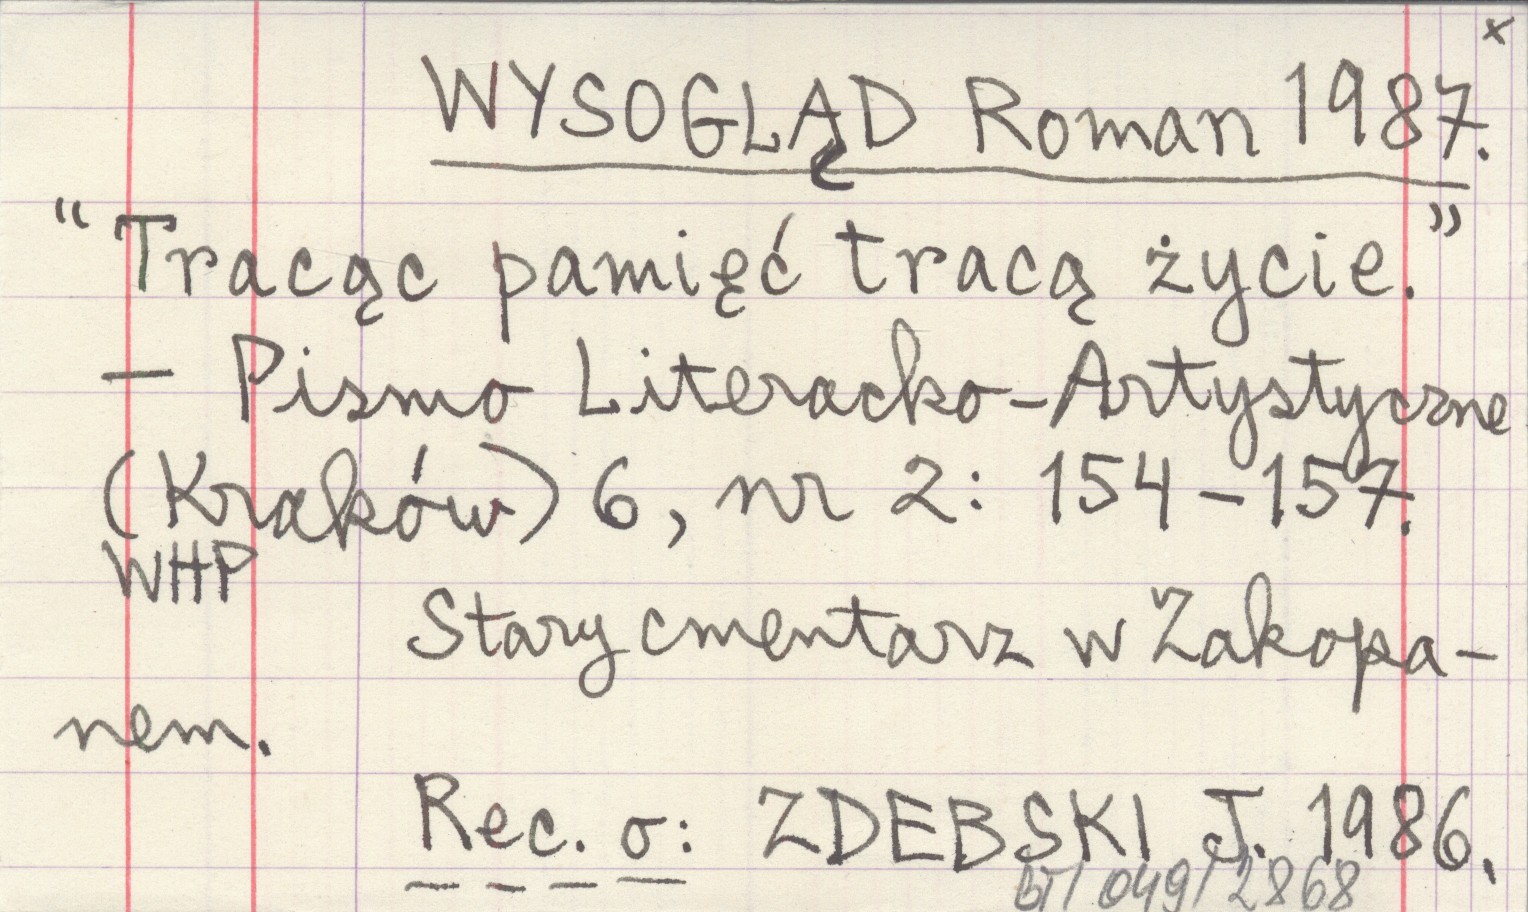 x
WYSOGLĄD Roman 1987.
“Tracąc pamięć tracą życie.”
— Pismo Literacko-Artystyczne
(Kraków) 6, nr 2: 154–157.
WHP
Stary cmentarz w Zakopa-
nem.
Rec. o: ZDEBSKI J. 1986.
BT/049/2868